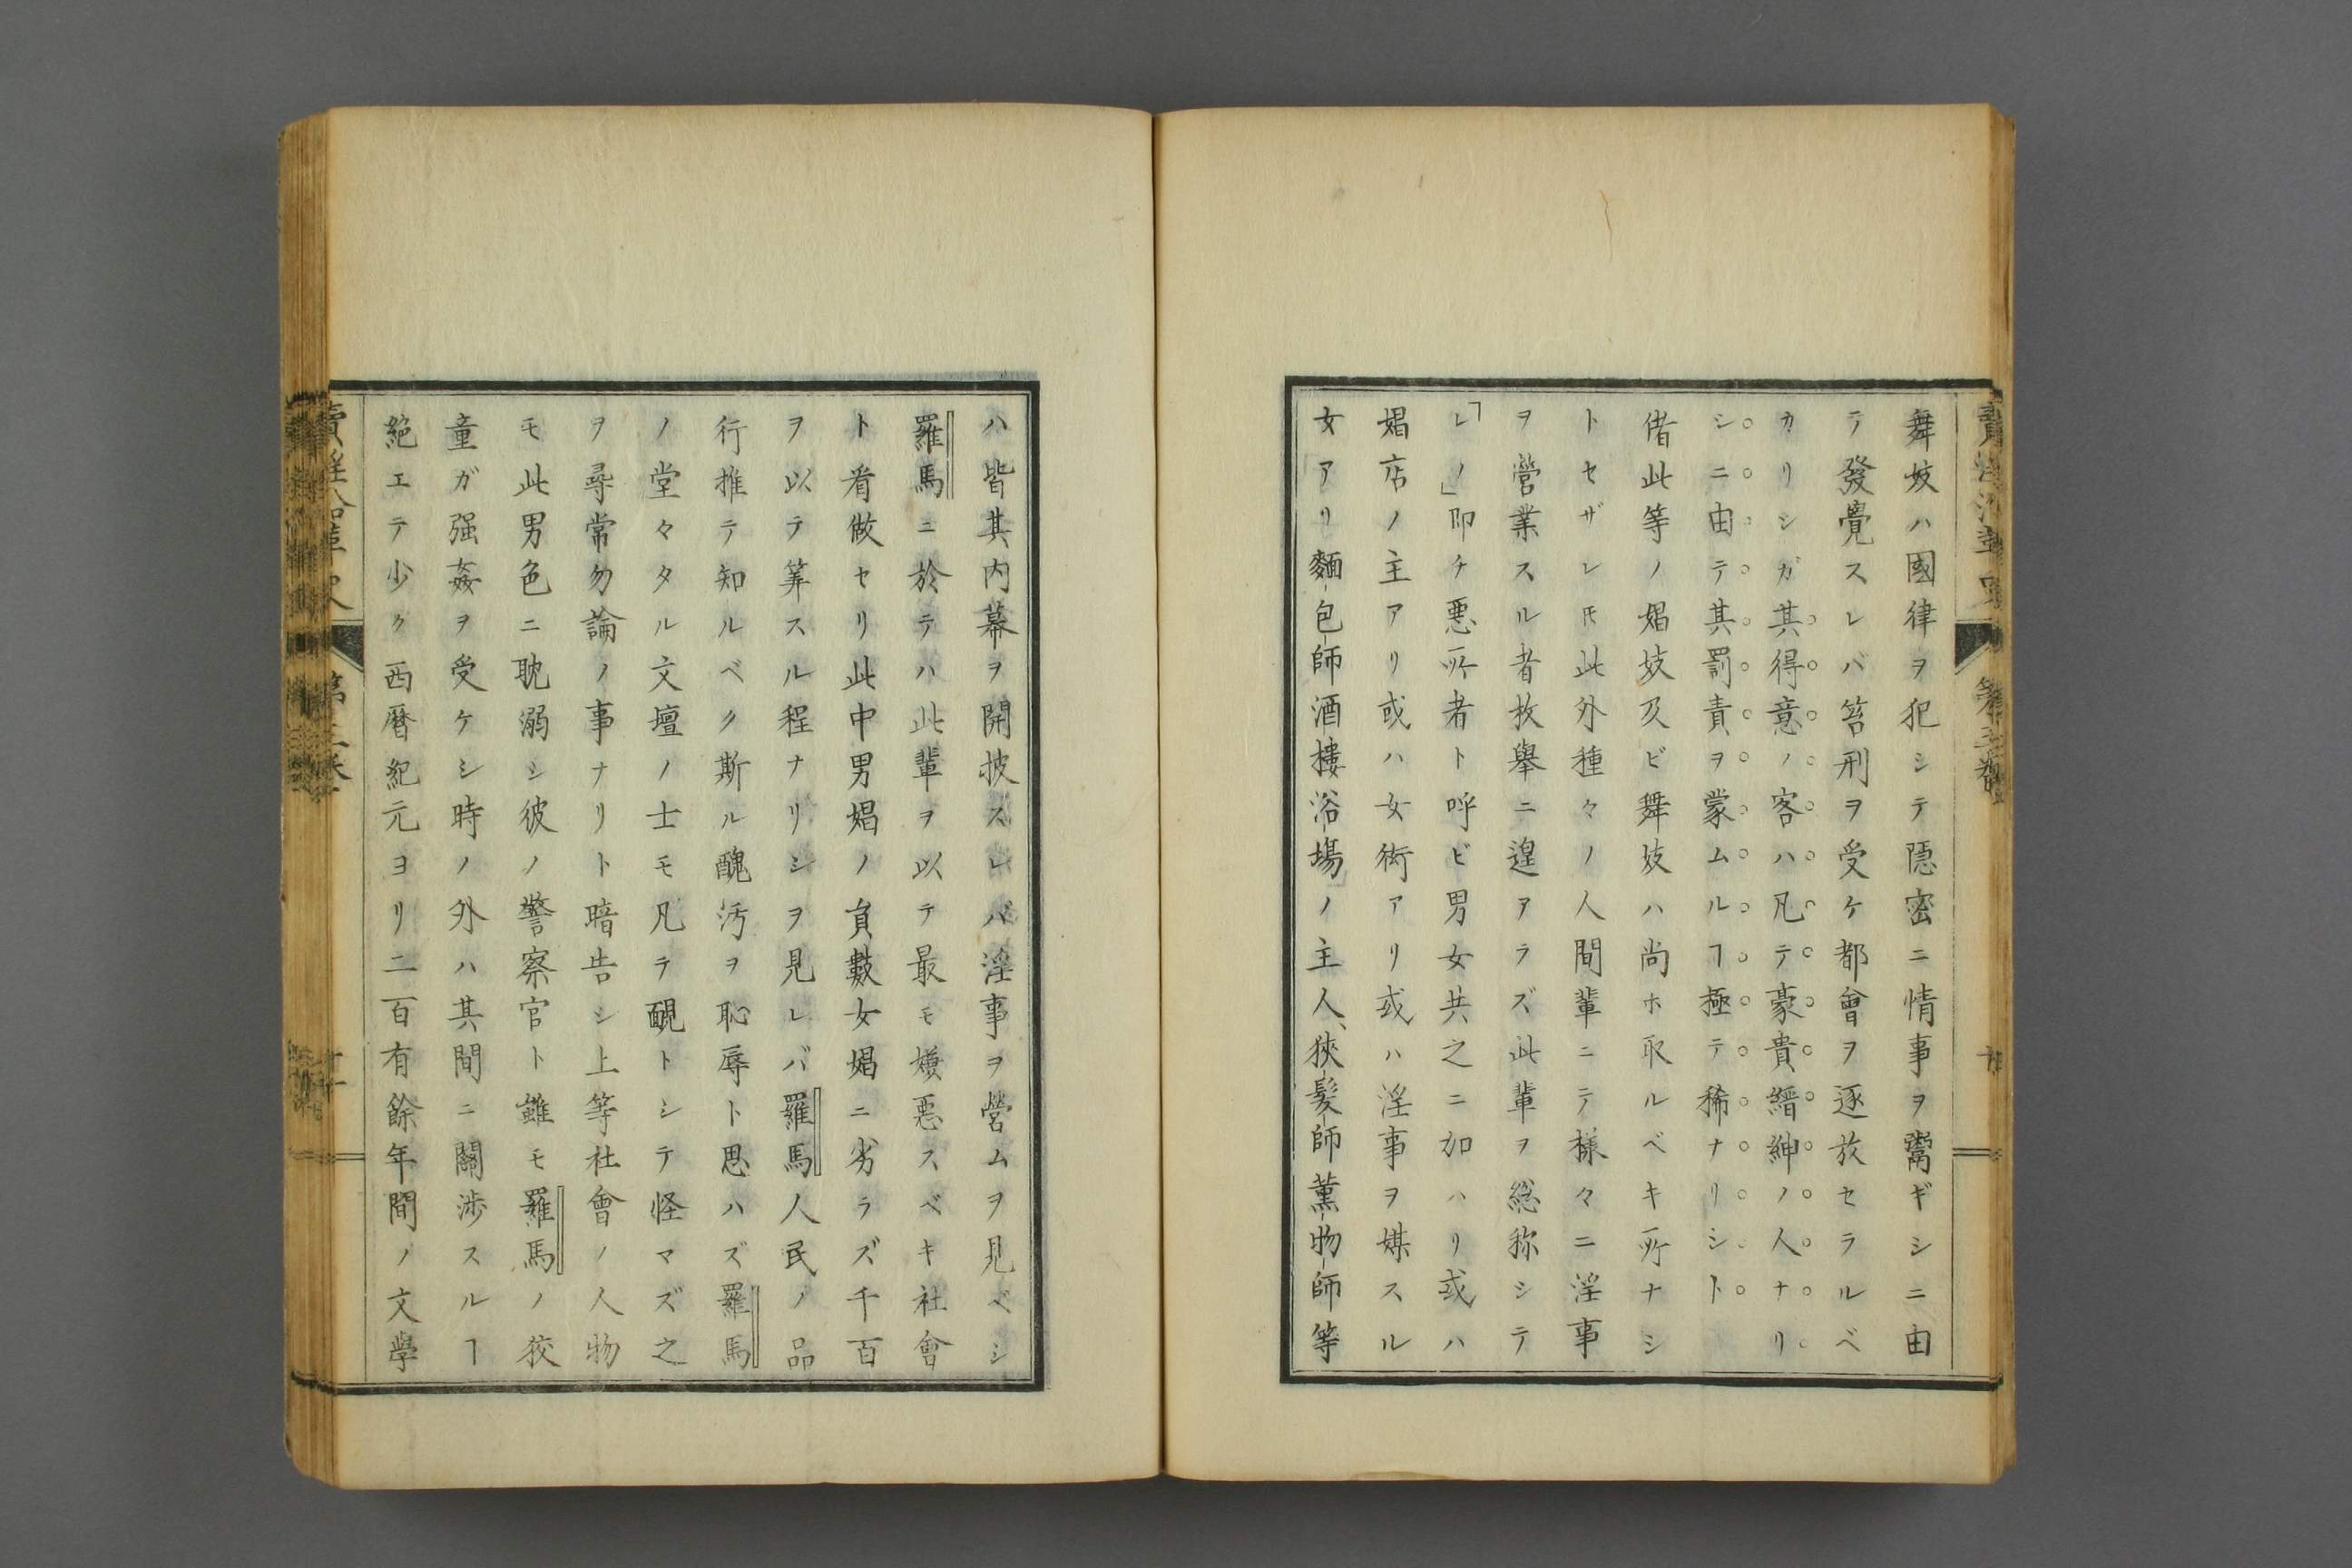 舞妓ハ國律ヲ犯シテ隠密ニ情事ヲ鬻ギシニ由
テ發覺スレバ笞刑ヲ受ケ都會ヲ逐放セラルベ
カリシガ其得意ノ客ハ凡テ豪貴縉紳ノ人ナリ
シニ由テ其罰責ヲ蒙ムルヿ極テ稀ナリシト
偖此等ノ娼妓及ビ舞妓ハ尚ホ取ルベキ所ナシ
トセザレ𪜈此外種々ノ人間輩ニテ様々ニ淫事
ヲ營業スル者枚舉ニ遑アラズ此輩ヲ総称シテ
「レノ」即チ悪所者ト呼ビ男女共之ニ加ハリ或ハ
娼店ノ主アリ或ハ女衒アリ或ハ淫事ヲ媒スル
女アリ麵包師酒樓浴場ノ主人、狹髪師薫物師等
ハ皆其内幕ヲ開披スレバ淫事ヲ營ムヲ見ベシ
羅馬ニ於テハ此輩ヲ以テ最モ嫌惡スベキ社會
ト看做セリ此中男娼ノ員數女娼ニ劣ラズ千百
ヲ以テ筭スル程ナリシヲ見レバ羅馬人民ノ品
行推テ知ルベク斯ル醜汚ヲ恥辱ト思ハズ羅馬
ノ堂々タル文壇ノ士モ凡テ醌トシテ怪マズ之
ヲ尋常勿論ノ事ナリト暗告シ上等社會ノ人物
モ此男色ニ耽溺シ彼ノ警察官ト雖モ羅馬ノ狡
童ガ强姦ヲ受ケシ時ノ外ハ其間ニ關渉スルヿ
絶エテ少ク西暦紀元ヨリ二百有餘年間ノ文學